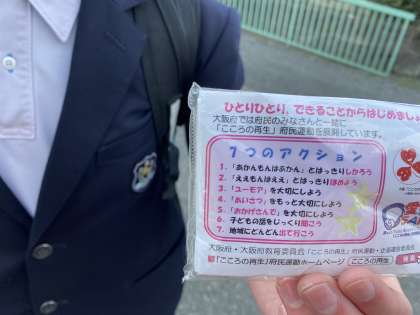 ひとりひとり、できることからはじめましょ
大阪府では府民のみなさんと一緒に
「こころの再生」府民運動を展開しています。
7つのアクション
1.「あかんもんはあかん」とはっきりしかろう
2.「ええもんはええ」とはっきりほめよう
3.「ユーモア」を大切にしよう
4.「あいさつ」をもっと大切にしよう
5.「おかげさんで」を大切にしよう
6. 子どもの話をじっくり聞こう
7. 地域にどんどん出て行こう
大阪府・大阪府教育委員会「こころの再生」府民運動・企画運営会議
「こころの再生」府民運動ホームページ こころの再生